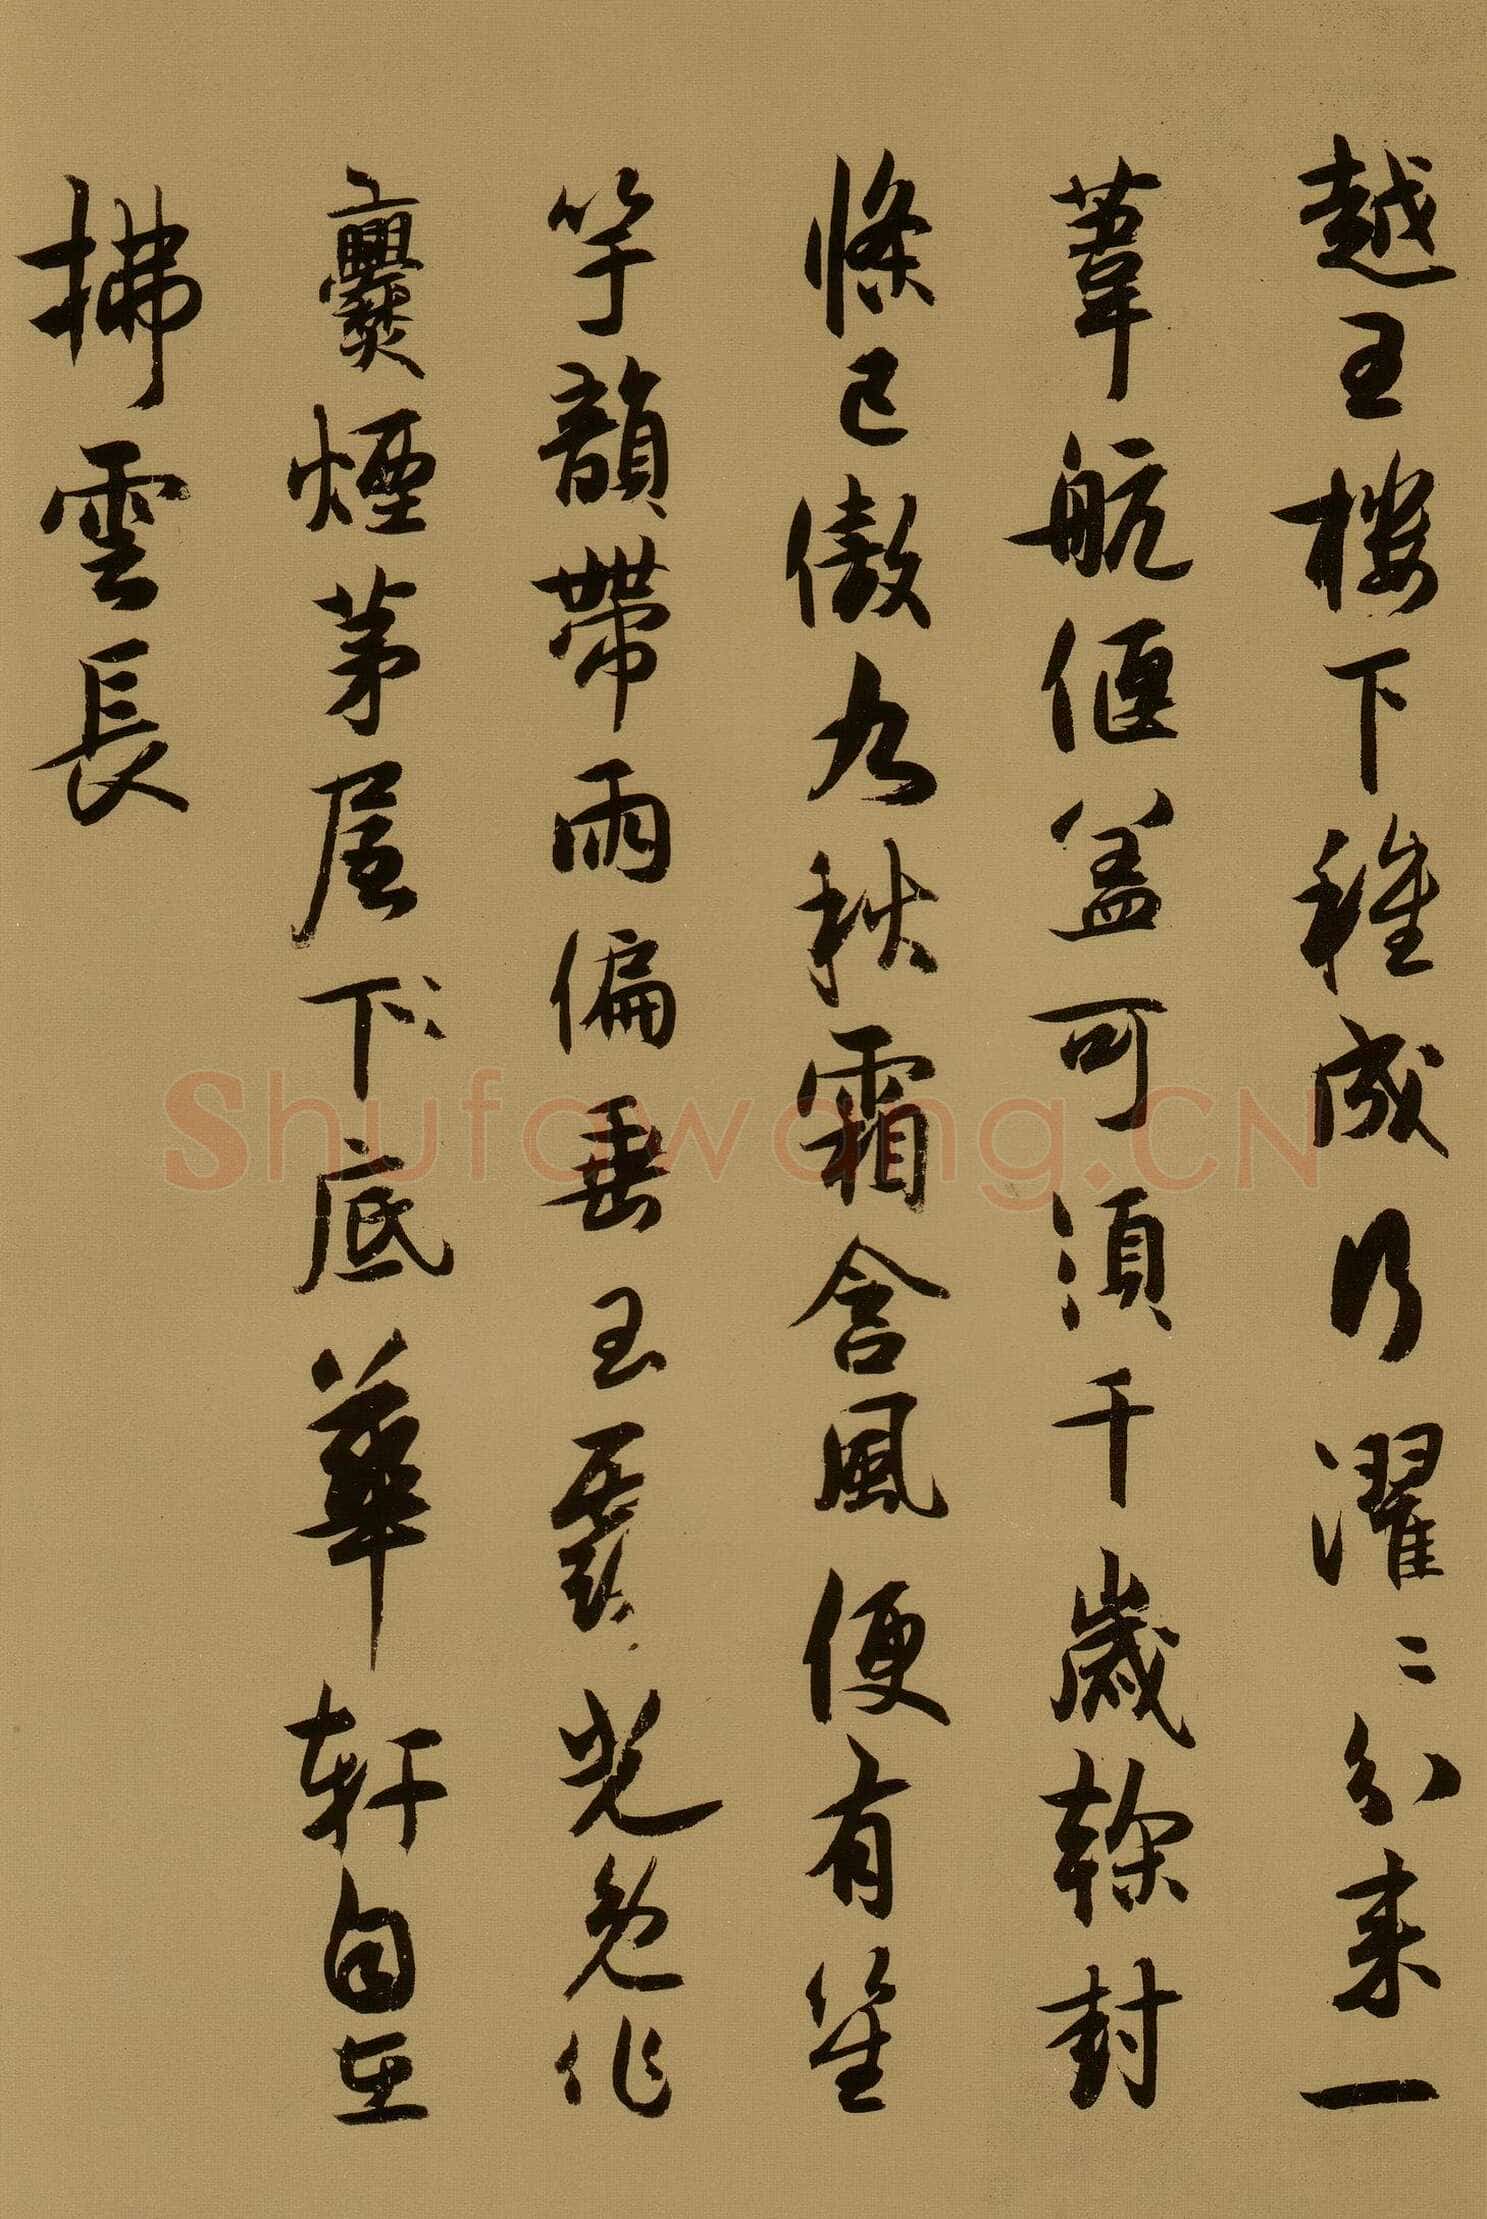 越王樓下種成行濯〻分來一
葦航偃蓋可須千歲榦封
條已傲九秋霜含風便有笙
竽韻帶雨偏垂玉露光免作
爨煙茅屋下〻底華軒自在
拂雲長
Shufawang.CN